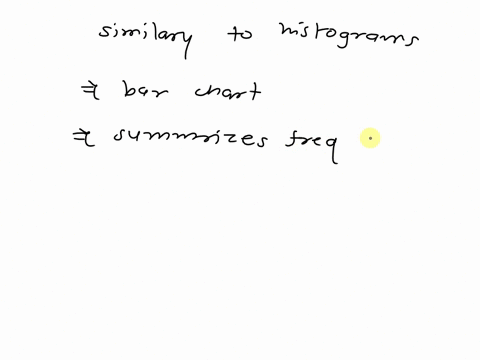 similary to histograms
⇒ bar chart
⇒ summrizes freq